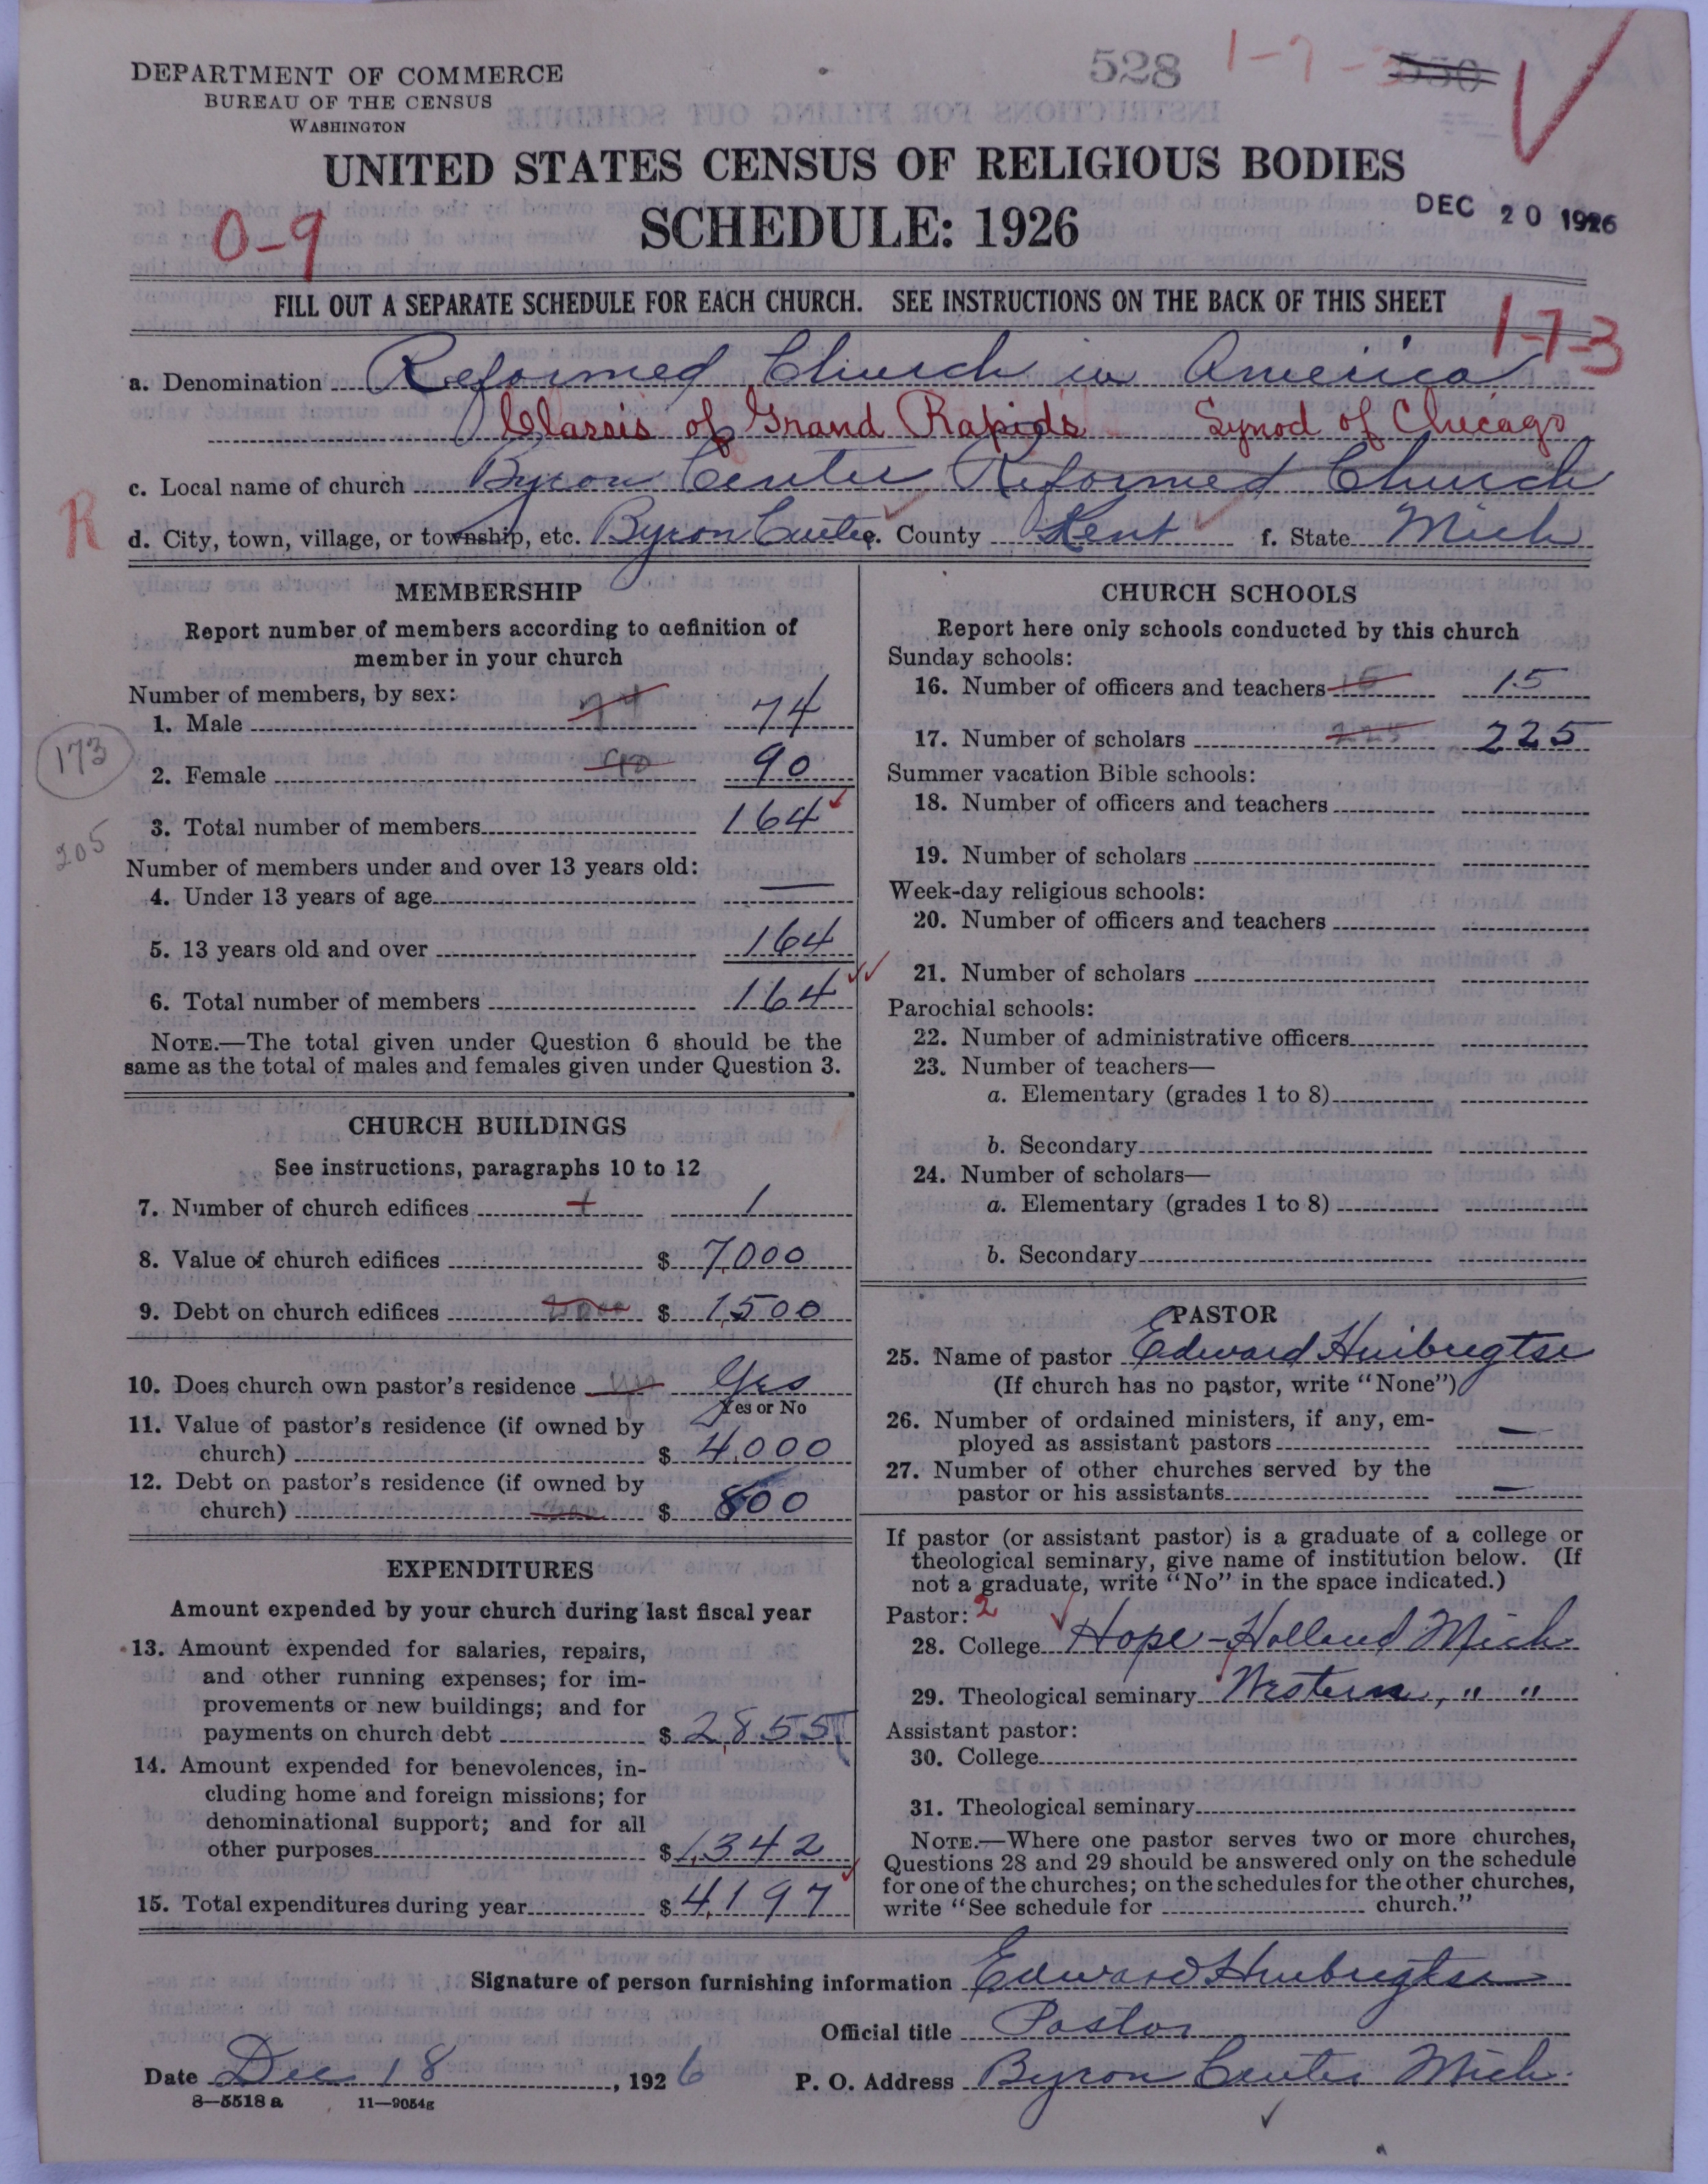 528 1-7-3 550
DEPARTMENT OF COMMERCE
BUREAU OF THE CENSUS
WASHINGTON
UNITED STATES CENSUS OF RELIGIOUS BODIES
SCHEDULE: 1926
DEC 20 1926
0-9
FILL OUT A SEPARATE SCHEDULE FOR EACH CHURCH. SEE INSTRUCTIONS ON THE BACK OF THIS SHEET
1-7-3
a. Denomination Reformed Church in America
Classis of Grand Rapids Synod of Chicago
c. Local name of church Byron Center Reformed Church
R
d. City, town, village, or township, etc. Byron Center e. County Kent f. State Mich
MEMBERSHIP
Report number of members according to definition of
member in your church
Number of members, by sex:
1. Male 74 74
173
2. Female 90 90
3. Total number of members 164
205
Number of members under and over 13 years old:
4. Under 13 years of age —
5. 13 years old and over 164
6. Total number of members 164
NOTE.—The total given under Question 6 should be the
same as the total of males and females given under Question 3.
CHURCH BUILDINGS
See instructions, paragraphs 10 to 12
7. Number of church edifices 1 1
8. Value of church edifices $ 7,000
9. Debt on church edifices $ 1,500
10. Does church own pastor's residence yes Yes
Yes or No
11. Value of pastor's residence (if owned by
church) $ 4,000
12. Debt on pastor's residence (if owned by
church) $ 800
EXPENDITURES
Amount expended by your church during last fiscal year
13. Amount expended for salaries, repairs,
and other running expenses; for im-
provements or new buildings; and for
payments on church debt $ 2,855
14. Amount expended for benevolences, in-
cluding home and foreign missions; for
denominational support; and for all
other purposes $ 1,342
15. Total expenditures during year $ 4,197
CHURCH SCHOOLS
Report here only schools conducted by this church
Sunday schools:
16. Number of officers and teachers 15 15
17. Number of scholars 225 225
Summer vacation Bible schools:
18. Number of officers and teachers
19. Number of scholars
Week-day religious schools:
20. Number of officers and teachers
21. Number of scholars
Parochial schools:
22. Number of administrative officers
23. Number of teachers—
a. Elementary (grades 1 to 8)
b. Secondary
24. Number of scholars—
a. Elementary (grades 1 to 8)
b. Secondary
PASTOR
25. Name of pastor Edward Huibregtse
(If church has no pastor, write "None")
26. Number of ordained ministers, if any, em-
ployed as assistant pastors —
27. Number of other churches served by the
pastor or his assistants —
If pastor (or assistant pastor) is a graduate of a college or
theological seminary, give name of institution below. (If
not a graduate, write "No" in the space indicated.)
Pastor: 2
28. College Hope - Holland Mich
29. Theological seminary Western, " "
Assistant pastor:
30. College
31. Theological seminary
NOTE.—Where one pastor serves two or more churches,
Questions 28 and 29 should be answered only on the schedule
for one of the churches; on the schedules for the other churches,
write "See schedule for church."
Signature of person furnishing information Edward Huibregtse
Official title Pastor
Date Dec 18, 1926 P. O. Address Byron Center Mich.
8—5518 a 11—9054g